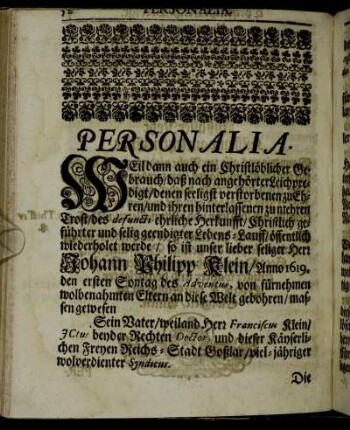 PERSONALIA.
PERSONALIA.
WEil dann auch ein Christlöblicher Ge-
brauch/ daß nach angehörter Leichpre-
digt/ denen seeligst verstorbenen zu Eh-
ren/ und ihren hinterlassenen zu mehren
Trost/ des defuncti ehrliche Herkunfft/ Christlich ge-
führter und selig geendigter Lebens-Lauff/ öffentlich
wiederholet werde/ so ist unser lieber seliger Herr
Johann Philipp Klein/ Anno 1619.
den ersten Sontag des Adventus, von fürnehmen
wolbenahmten Eltern an diese Welt gebohren/ mas-
sen gewesen
Sein Vater/ weiland Herr Franciscus Klein/
JCtus beyder Rechten Doctor, und dieser Käyserli-
chen Freyen Reichs-Stadt Goßlar/ viel-jähriger
wolverdienter Syndicus.
Die